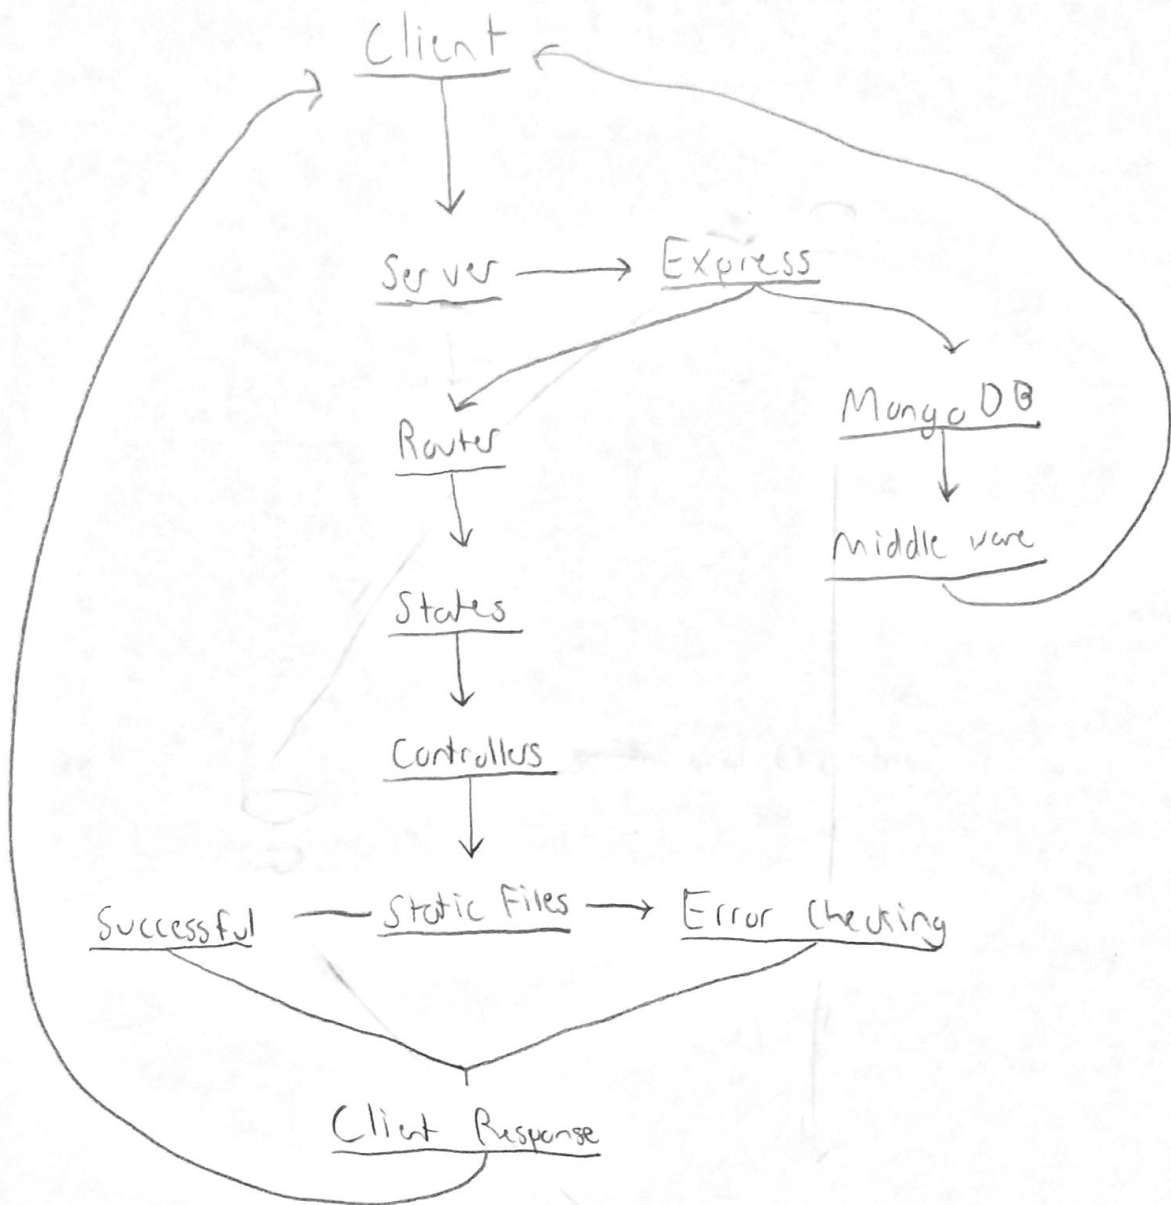 Client
Server
Express
Router
Mongo DB
Middle ware
States
Controllers
Successful
Static Files
Error Checking
Client Response